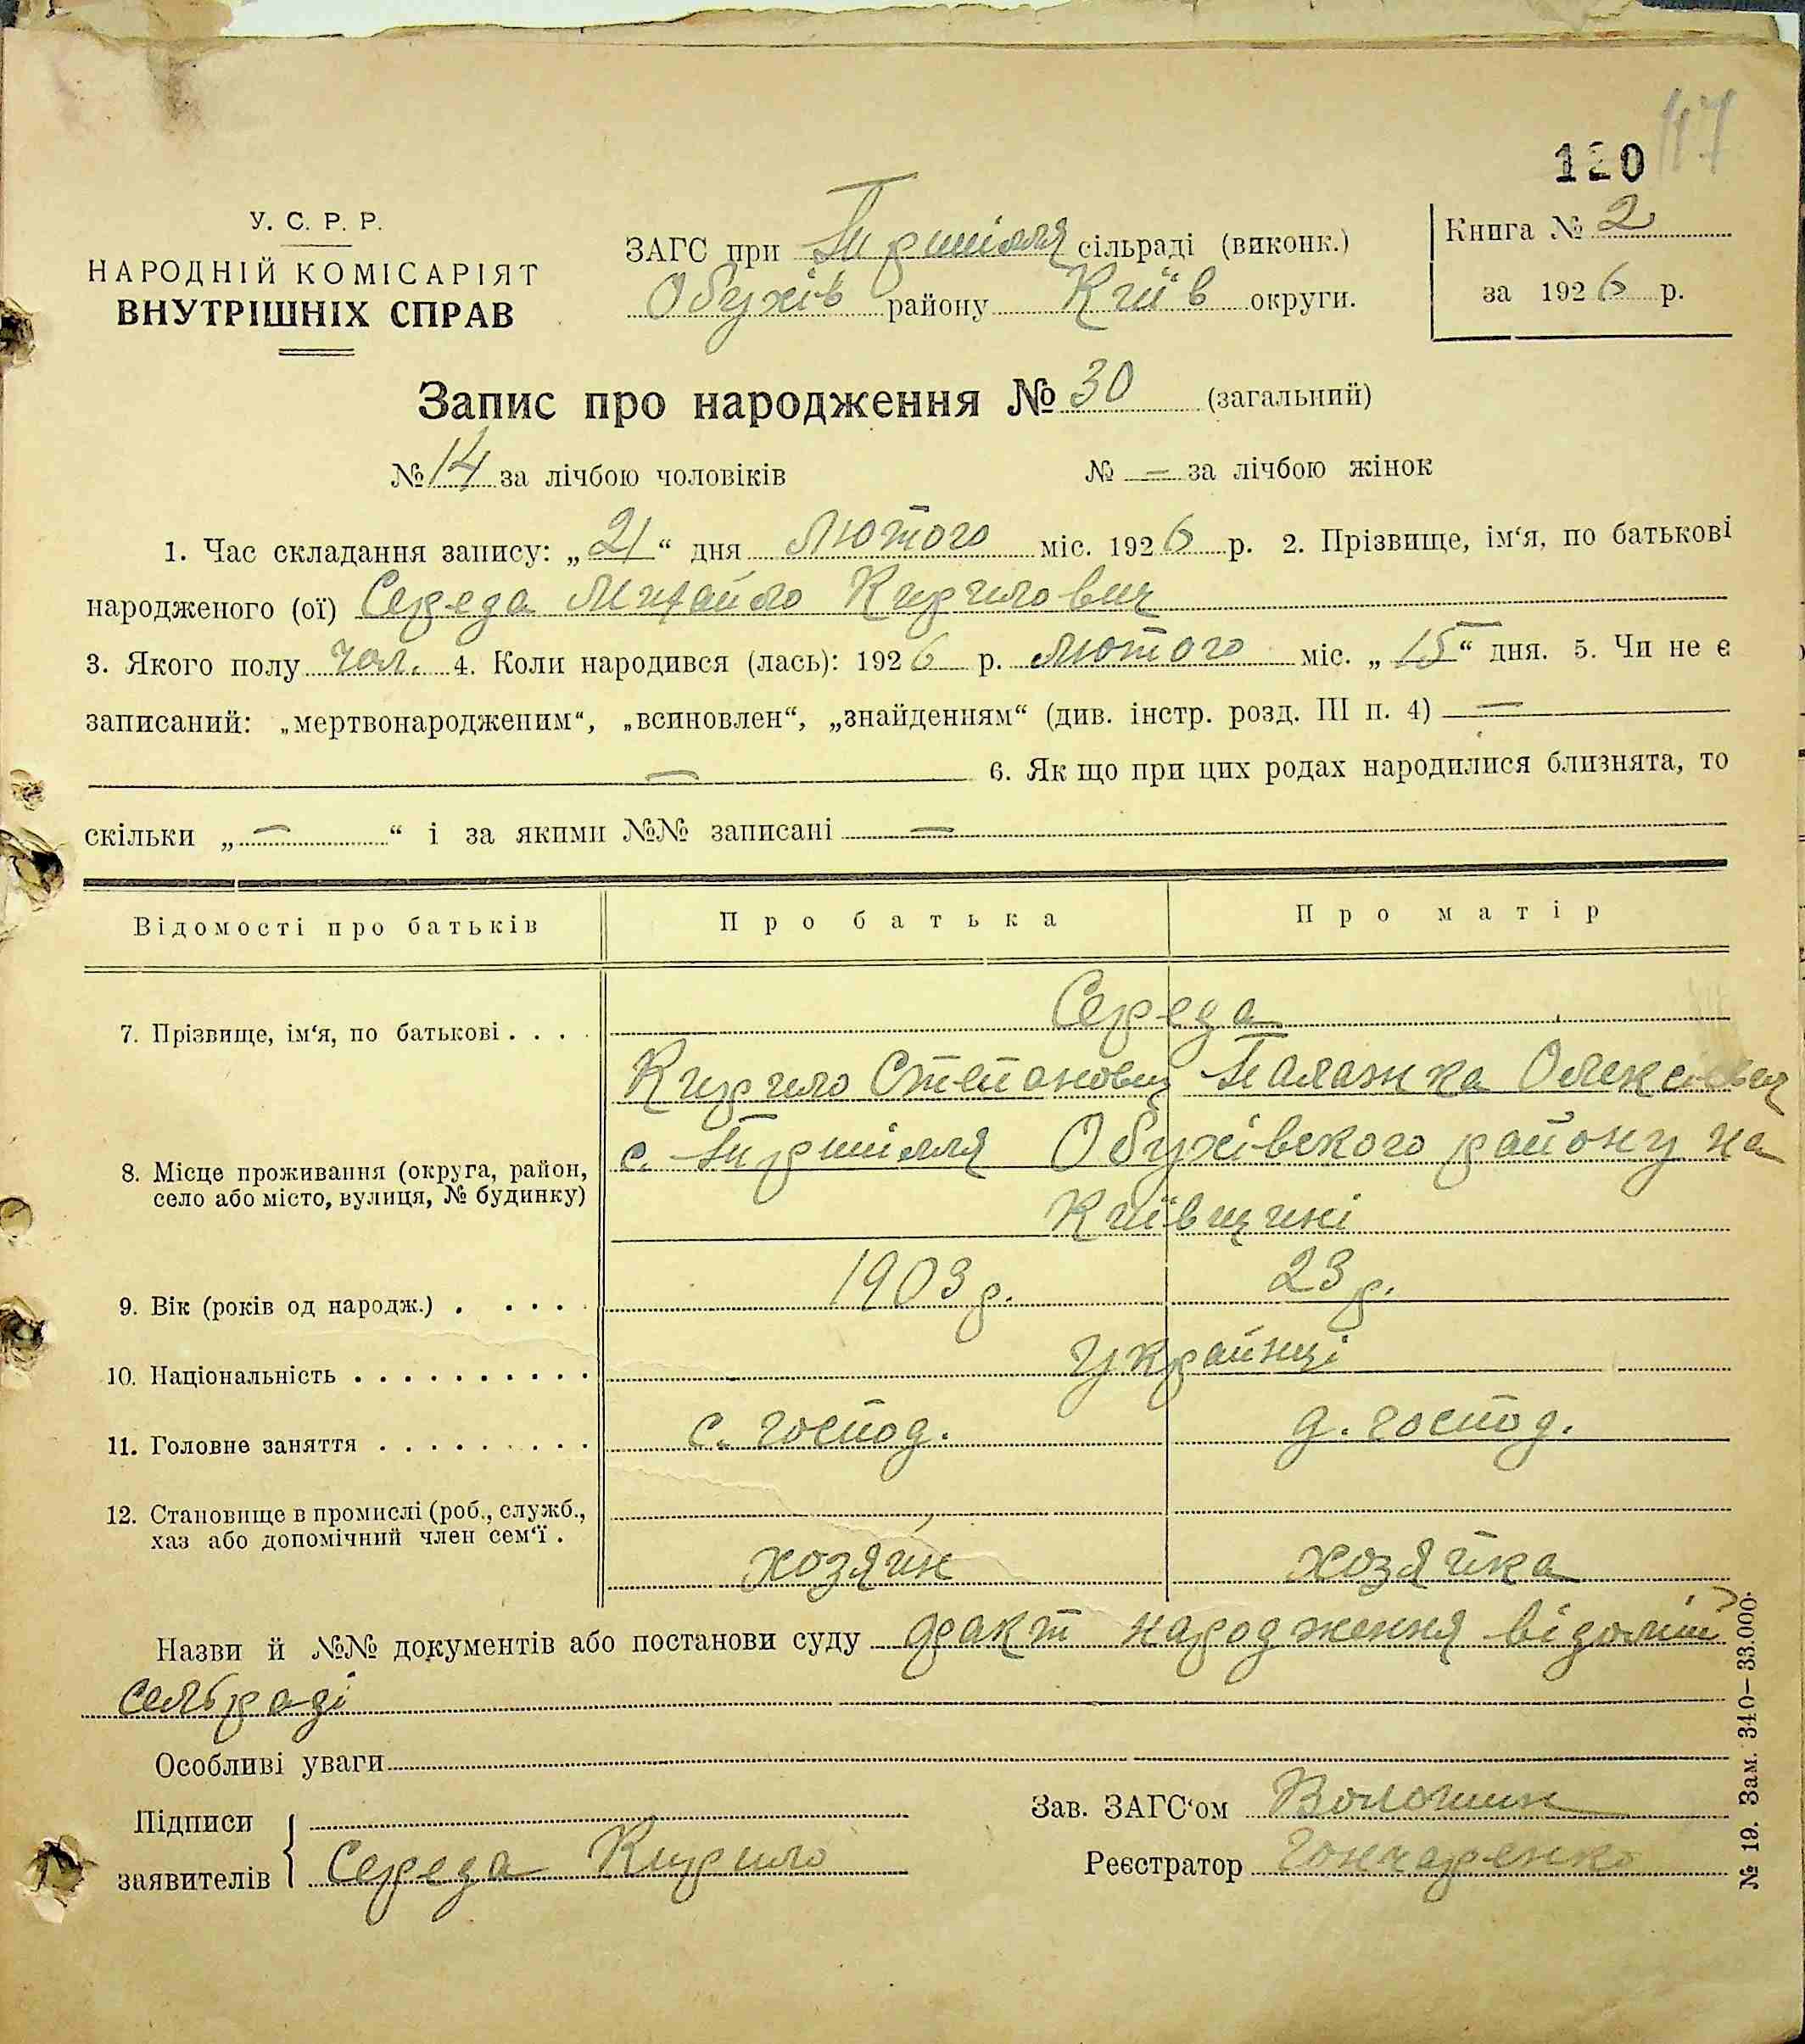 120 117
У. С. Р. Р.
НАРОДНІЙ КОМІСАРІЯТ
ВНУТРІШНІХ СПРАВ
ЗАГС при Підгірцях сільраді (виконк.)
Обухів району Київ округи.
Книга № 2
за 1926 р.
Запис про народження № 30 (загальний)
№ 14 за лічбою чоловіків № — за лічбою жінок
1. Час складання запису: „21“ дня Лютого міс. 1926 р. 2. Прізвище, ім‘я, по батькові
народженого (ої) Середа Михайло Кирилович
3. Якого полу чол. 4. Коли народився (лась): 1926 р. Лютого міс. „15“ дня. 5. Чи не є
записаний: „мертвонародженим“, „всиновлен“, „знайденням“ (див. інстр. розд. III п. 4) —
— 6. Як що при цих родах народилися близнята, то
скільки „—“ і за якими №№ записані —
Відомості про батьків Про батька Про матір
7. Прізвище, ім‘я, по батькові . . . . Середа
Кирило Степанович Палажка Олексієвна
с. Обухівського району на
8. Місце проживання (округа, район,
село або місто, вулиця, № будинку)
Київщині
9. Вік (років од народж.) . . . . . 1903 р. 23 р.
10. Національність . . . . . . . . . . українці
11. Головне заняття . . . . . . . . . с. господ. д. господ.
12. Становище в промислі (роб., служб.,
хаз або допомічний член сем‘ї .
хозяін хозяйка
Назви й №№ документів або постанови суду факт народження відомий
сельраді
Особливі уваги
Підписи
заявителів Середа Кирило
Зав. ЗАГС‘ом Волошин
Реєстратор Гончаренко
№ 19. Зам. 340—33.000.